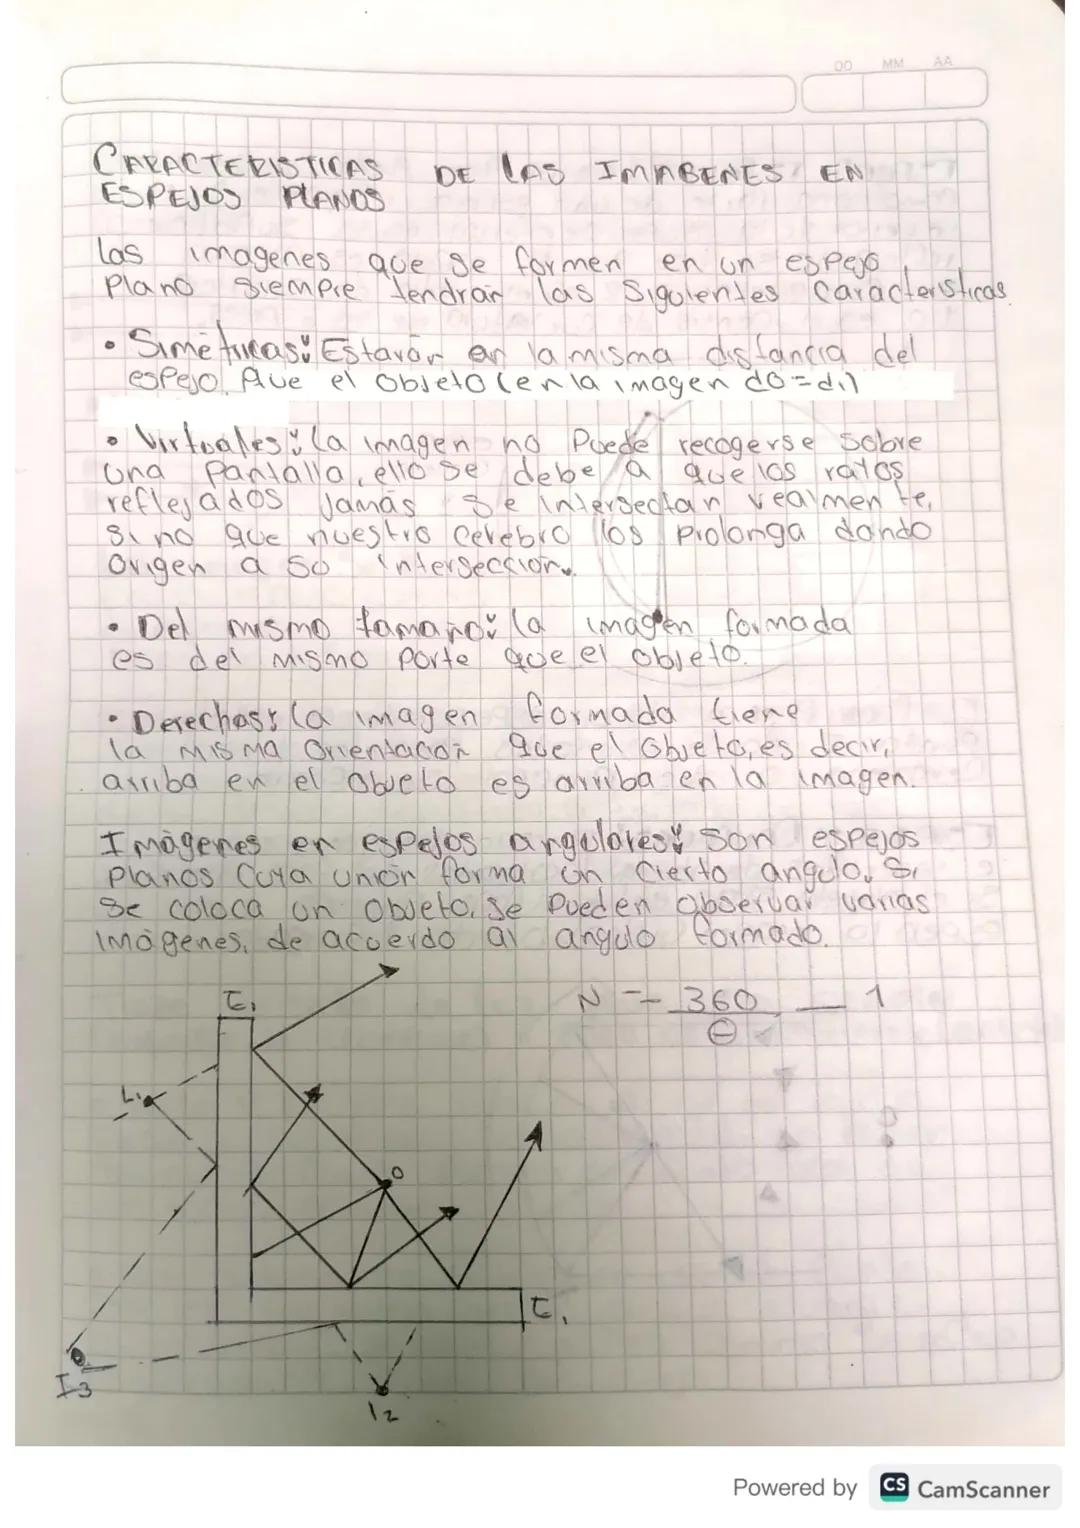 DD MM AA
CARACTERISTICAS DE LAS IMAGENES EN
ESPEJOS PLANOS
Las imagenes que se formen en un espejo
Plano siempre tendran las siguientes caracteristicas
• Simétricas: Estarán en la misma distancia del
espejo que el objeto (en la imagen do=di)
• Virtuales: La imagen no puede recogerse sobre
una pantalla, ello se debe a que los rayos
reflejados jamás se intersectan realmente,
si no que nuestro cerebro los prolonga dando
origen a su intersección.
• Del mismo tamaño: La imagen formada
es del mismo porte que el objeto.
• Derechas: La imagen formada tiene
la misma orientacion que el objeto, es decir,
arriba en el objeto es arriba en la imagen.
Imágenes en espejos angulares: Son espejos
planos cuya unión forma un cierto angulo. Si
se coloca un objeto, se pueden observar varias
imágenes, de acuerdo al angulo formado.
N = 360 — 1
Θ
E1
L1
O
E1
I3
I2
Powered by CS CamScanner